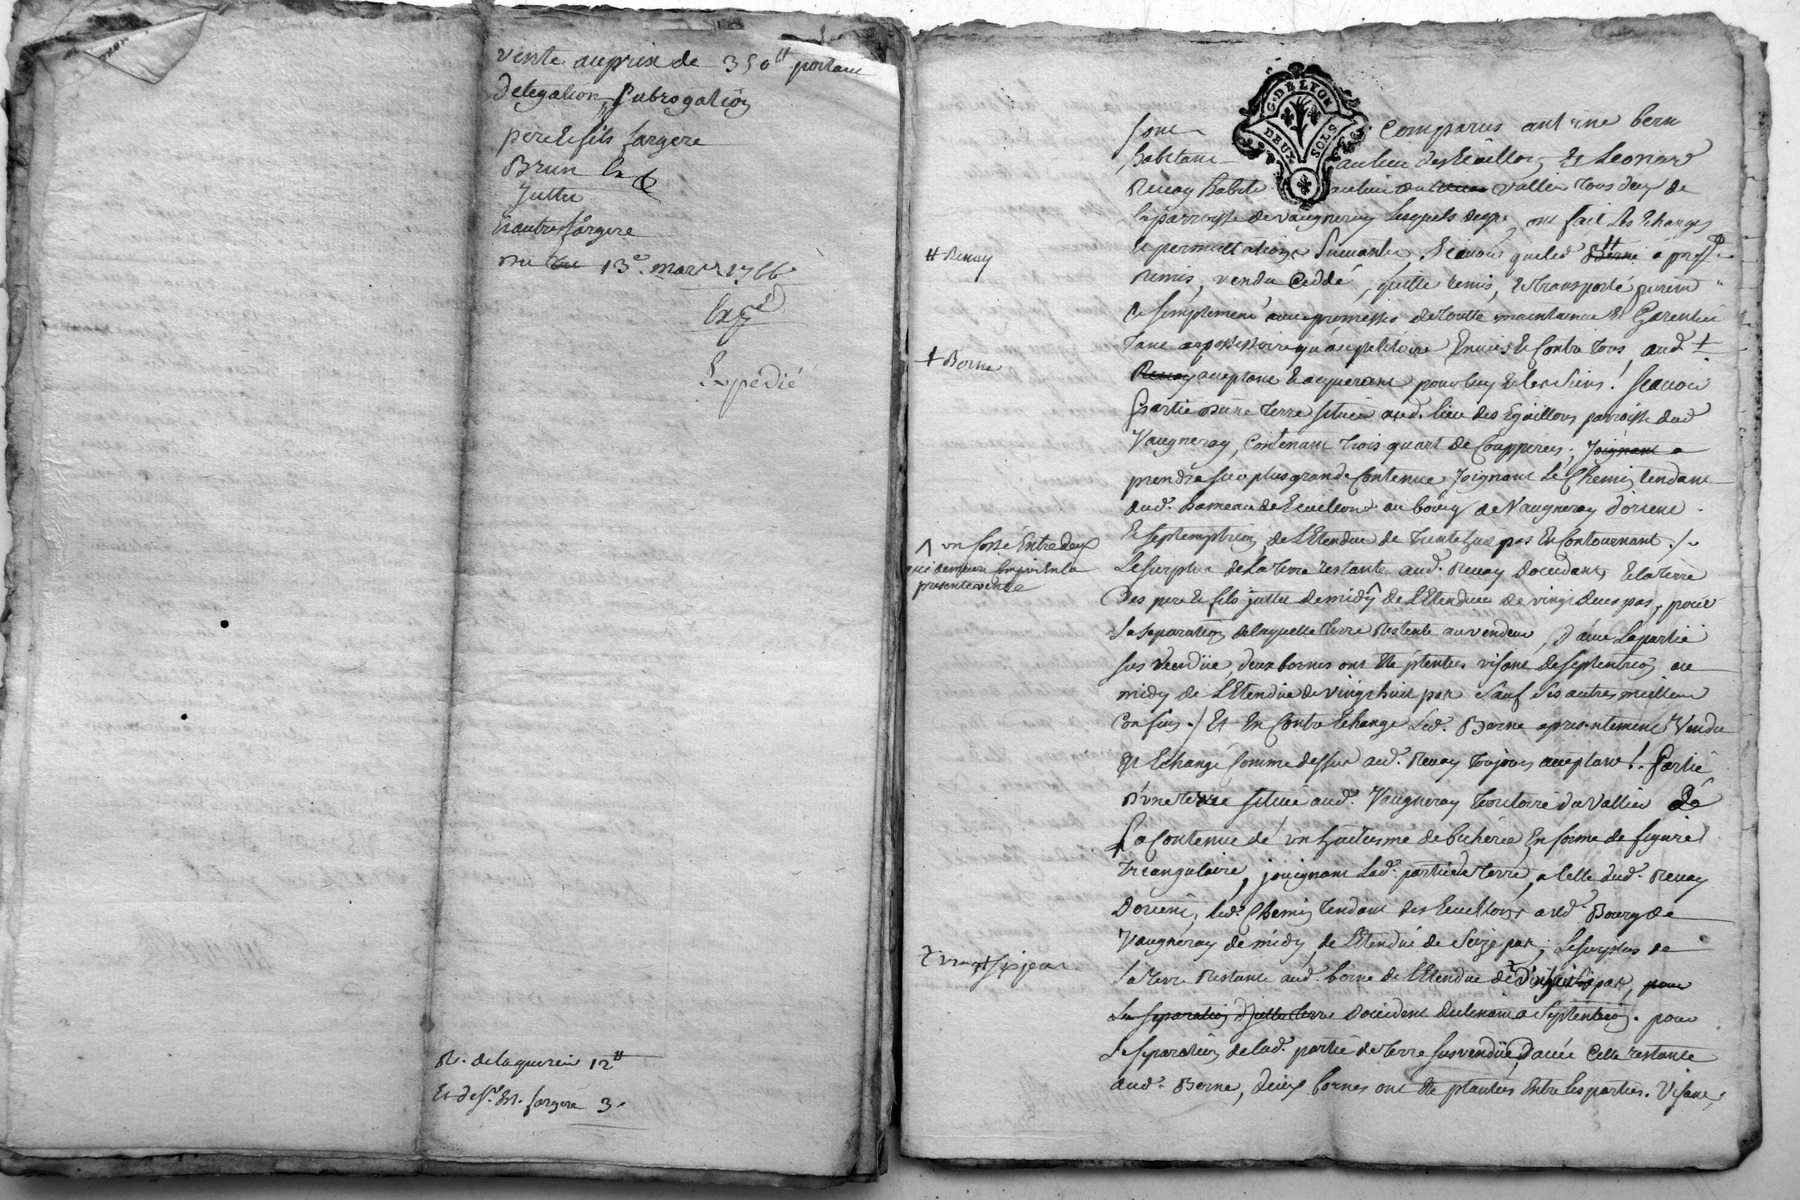 vente au prix de 350 ₶ portant
Delegation, Subrogation
pere et fils fargere
Brun
Juttet
et autre fargere
Du 13e. mars 1766
Expedié
R. de laguerein 12 ₶
fargere 3.
G. DE LYON
DEUX SOLS
Sont Comparus antoine bern
habitant au lieu des Et Leonard
Renay habit. au lieu du vallier tous deux de
la parroisse de vaugneray lesquels ont fait les Echanges
et permuttations suivantes, scavoir que led. Berne a
# Renay
remis, vendu ceddé, quitte remis, et transporté purem
et simplement avec promesses de toutte maintenue et Garentie
tant au possessoire qu'au petitoire Envers et Contre tous, aud. ‡
‡ Borne
Renay acceptant et acquerant pour luy et les siens! scavoir
Partie d'une terre située aud. lieu des Egaillons parroisse dud
Vaugneray, contenant trois quart de Couppees, Joignant a
prendre sur plus grande Contenue Joignant le Chemin tendant
aud. hameau de au bourg de Vaugneray d'orient
et septemtrion, de l'Etendue de pas En Contournant ./.
^ un fossé Entre deux
qui demeure Compris En la
presente vente
Le surplus de la terre restante aud. Renay D'occidant, et la terre
des pere et fils juttet de midy ^ de l'Etendue de vingt deux pas, pour
La separation de laquelle terre restente au vendeur, D'avec la partie
sus vendüe, deux bornes ont été plentées visant de septentrion au
midy de l'Etendüe de vingt huit pas sauf ses autres meilleurs
Confins ./ Et En Contre Echange Led. Berne a presentement Vendu
et Echangé Comme dessus aud. Renay toujours acceptant!. Partie
D'une terre située aud. Vaugneray territoire du Vallier De
La Contenue de un huitiesme de bicherée En forme de figure
Treangulaire, joignant Lad. partie de terre, a Celle dud. Renay
D'orient, led. Chemin tendant des aud. Bourg de
Vaugneray de midy, de l'Etendue de Seize pas; Le surplus de
la terre restante aud. borne de l'Etendue de pas, pour
La separation Dicelle terre D'occident declinant a Septentrion. pour
La separation de lad. partie de terre susvendüe, D'avec Celle restante
aud. Berne, deux bornes ont été plantées Entre les parties. Visant,